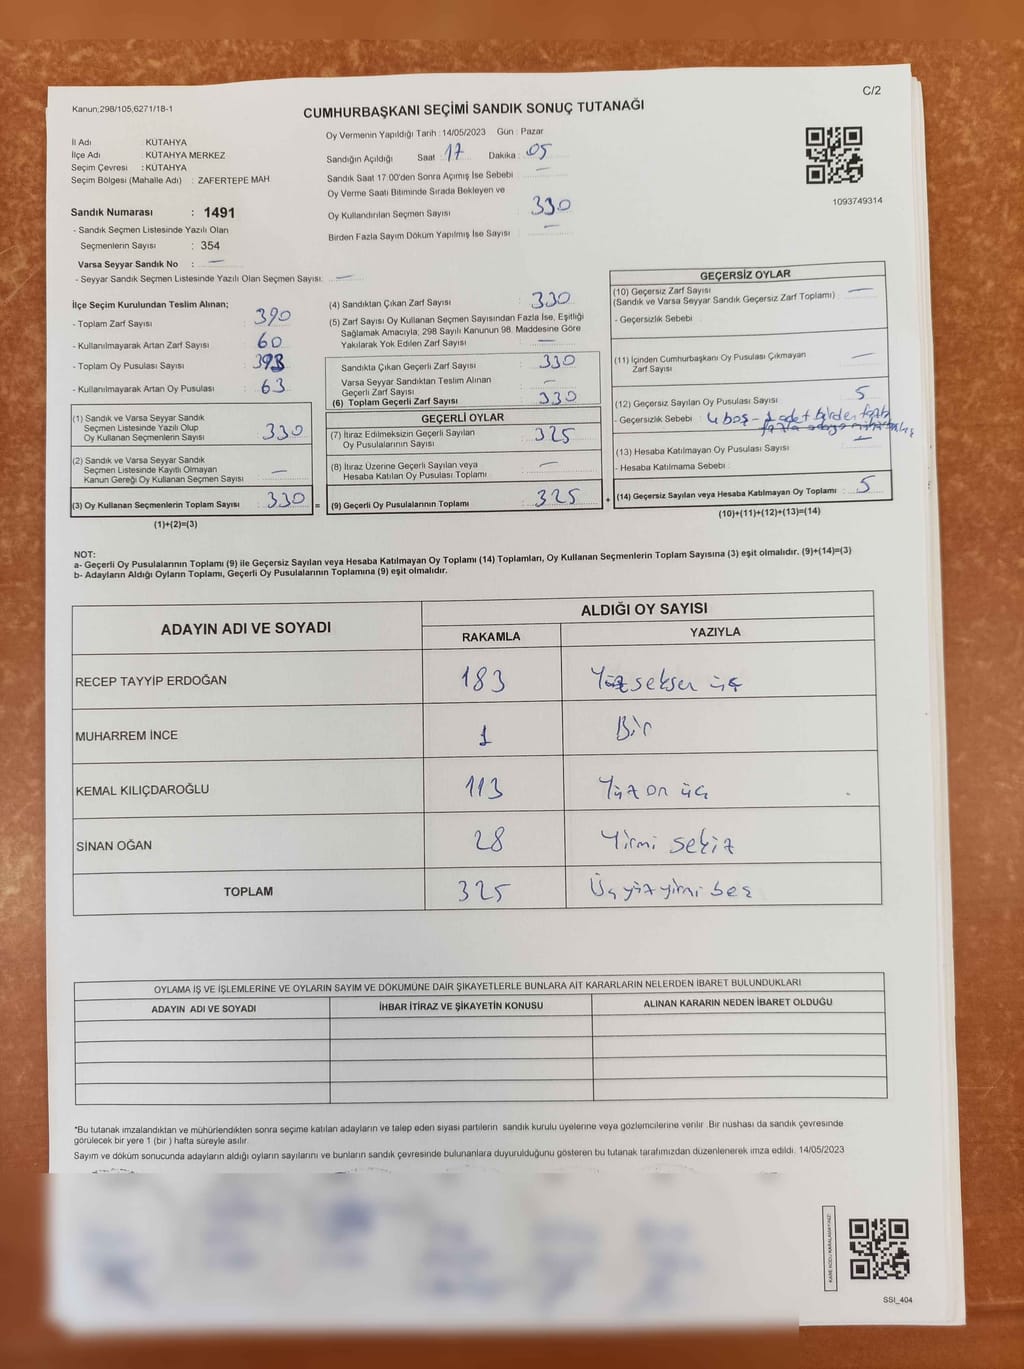 C/2
Kanun;298/105,6271/18-1
CUMHURBAŞKANI SEÇİMİ SANDIK SONUÇ TUTANAĞI
İl Adı KÜTAHYA
İlçe Adı : KÜTAHYA MERKEZ
Seçim Çevresi : KÜTAHYA
Seçim Bölgesi (Mahalle Adı) : ZAFERTEPE MAH
Sandık Numarası : 1491
- Sandık Seçmen Listesinde Yazılı Olan
Seçmenlerin Sayısı : 354
Varsa Seyyar Sandık No : —
- Seyyar Sandık Seçmen Listesinde Yazılı Olan Seçmen Sayısı: —
Oy Vermenin Yapıldığı Tarih : 14/05/2023 Gün : Pazar
Sandığın Açıldığı Saat : 17 Dakika : 05
Sandık Saat 17:00'den Sonra Açımış İse Sebebi : —
Oy Verme Saati Bitiminde Sırada Bekleyen ve
Oy Kullandırılan Seçmen Sayısı : 330
Birden Fazla Sayım Döküm Yapılmış İse Sayısı : —
1093749314
İlçe Seçim Kurulundan Teslim Alınan;
- Toplam Zarf Sayısı : 390
- Kullanılmayarak Artan Zarf Sayısı : 60
- Toplam Oy Pusulası Sayısı : 393
- Kullanılmayarak Artan Oy Pusulası : 63
(1) Sandık ve Varsa Seyyar Sandık
Seçmen Listesinde Yazılı Olup
Oy Kullanan Seçmenlerin Sayısı : 330
(2) Sandık ve Varsa Seyyar Sandık
Seçmen Listesinde Kayıtlı Olmayan
Kanun Gereği Oy Kullanan Seçmen Sayısı : —
(3) Oy Kullanan Seçmenlerin Toplam Sayısı : 330 =
(1)+(2)=(3)
(4) Sandıktan Çıkan Zarf Sayısı : 330
(5) Zarf Sayısı Oy Kullanan Seçmen Sayısından Fazla İse, Eşitliği
Sağlamak Amacıyla; 298 Sayılı Kanunun 98. Maddesine Göre
Yakılarak Yok Edilen Zarf Sayısı : —
Sandıkta Çıkan Geçerli Zarf Sayısı : 330
Varsa Seyyar Sandıktan Teslim Alınan
Geçerli Zarf Sayısı : —
(6) Toplam Geçerli Zarf Sayısı : 330
GEÇERLİ OYLAR
(7) İtiraz Edilmeksizin Geçerli Sayılan
Oy Pusulalarının Sayısı : 325
(8) İtiraz Üzerine Geçerli Sayılan veya
Hesaba Katılan Oy Pusulası Toplamı : —
(9) Geçerli Oy Pusulalarının Toplamı : 325 +
GEÇERSİZ OYLAR
(10) Geçersiz Zarf Sayısı : —
(Sandık ve Varsa Seyyar Sandık Geçersiz Zarf Toplamı)
- Geçersizlik Sebebi :
(11) İçinden Cumhurbaşkanı Oy Pusulası Çıkmayan
Zarf Sayısı : —
(12) Geçersiz Sayılan Oy Pusulası Sayısı : 5
- Geçersizlik Sebebi : 4 boş - 1 adet birden fazla
(13) Hesaba Katılmayan Oy Pusulası Sayısı : —
- Hesaba Katılmama Sebebi :
(14) Geçersiz Sayılan veya Hesaba Katılmayan Oy Toplamı : 5
(10)+(11)+(12)+(13)=(14)
NOT:
a- Geçerli Oy Pusulalarının Toplamı (9) ile Geçersiz Sayılan veya Hesaba Katılmayan Oy Toplamı (14) Toplamları, Oy Kullanan Seçmenlerin Toplam Sayısına (3) eşit olmalıdır. (9)+(14)=(3)
b- Adayların Aldığı Oyların Toplamı, Geçerli Oy Pusulalarının Toplamına (9) eşit olmalıdır.
ADAYIN ADI VE SOYADI ALDIĞI OY SAYISI
RAKAMLA YAZIYLA
RECEP TAYYİP ERDOĞAN 183 Yüz seksen üç
MUHARREM İNCE 1 Bir
KEMAL KILIÇDAROĞLU 113 Yüz on üç
SİNAN OĞAN 28 Yirmi sekiz
TOPLAM 325 Üç yüz yirmi beş
OYLAMA İŞ VE İŞLEMLERİNE VE OYLARIN SAYIM VE DÖKÜMÜNE DAİR ŞİKAYETLERLE BUNLARA AİT KARARLARIN NELERDEN İBARET BULUNDUKLARI
ADAYIN ADI VE SOYADI İHBAR İTİRAZ VE ŞİKAYETİN KONUSU ALINAN KARARIN NEDEN İBARET OLDUĞU
*Bu tutanak imzalandıktan ve mühürlendikten sonra seçime katılan adayların ve talep eden siyasi partilerin sandık kurulu üyelerine veya gözlemcilerine verilir. Bir nüshası da sandık çevresinde
görülecek bir yere 1 (bir ) hafta süreyle asılır.
Sayım ve döküm sonucunda adayların aldığı oyların sayılarını ve bunların sandık çevresinde bulunanlara duyurulduğunu gösteren bu tutanak tarafımızdan düzenlenerek imza edildi. 14/05/2023
KARE KODU KARALAMAYINIZ!
SSI_404